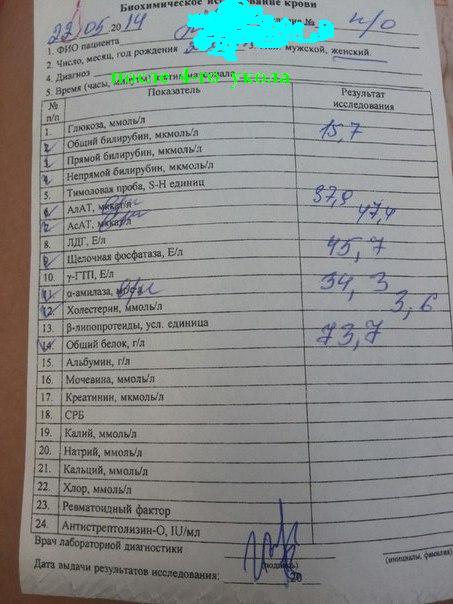 Биохимическое исследование крови
22/05 2014 п/о
1. ФИО пациента
2. Число, месяц, год рождения мужской, женский
4. Диагноз
после 4-го укола
5. Время (часы,
№ п/п Показатель Результат исследования
1. Глюкоза, ммоль/л
2. Общий билирубин, мкмоль/л 15,7
3. Прямой билирубин, мкмоль/л
4. Непрямой билирубин, мкмоль/л
5. Тимоловая проба, S-H единиц
6. АлАТ, мккат/л 37,9
7. АсАТ, мккат/л 47,4
8. ЛДГ, Е/л
9. Щелочная фосфатаза, Е/л 45,7
10. γ-ГТП, Е/л
11. α-амилаза, 34,3
12. Холестерин, ммоль/л 3,6
13. β-липопротеиды, усл. единица
14. Общий белок, г/л 73,7
15. Альбумин, г/л
16. Мочевина, ммоль/л
17. Креатинин, мкмоль/л
18. СРБ
19. Калий, ммоль/л
20. Натрий, ммоль/л
21. Кальций, ммоль/л
22. Хлор, ммоль/л
23. Ревматоидный фактор
24. Антистрептолизин-О, IU/мл
Врач лабораторной диагностики
(подпись) (инициалы, фамилия)
Дата выдачи результатов исследования: 20